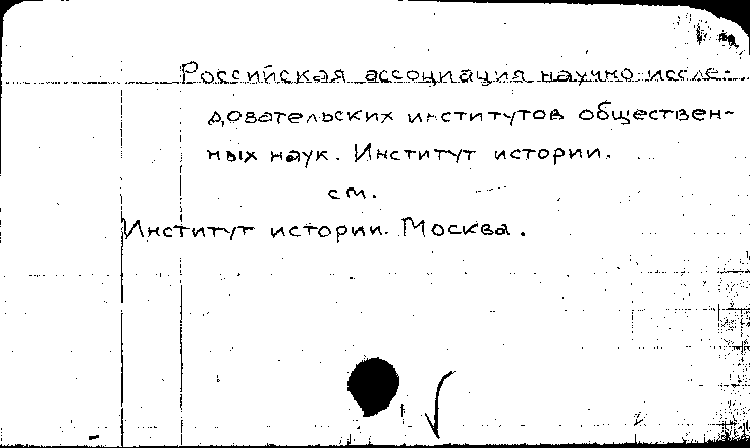 Российская ассоциация научно-иссле-
довательских институтов обществен-
ных наук. Институт истории.
см.
Институт истории. Москва.